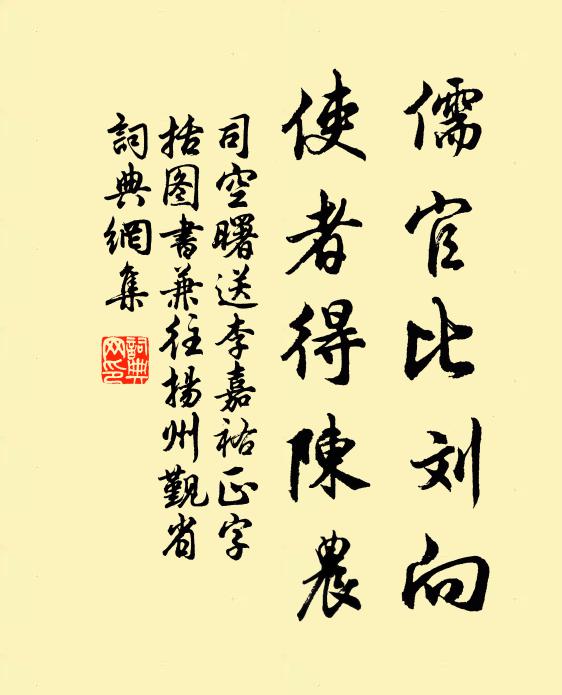 儒官比刘向
使者得陳農
司空曙送李嘉祐正字
括图書兼往揚州覲省
詞典網集
詞典
网印